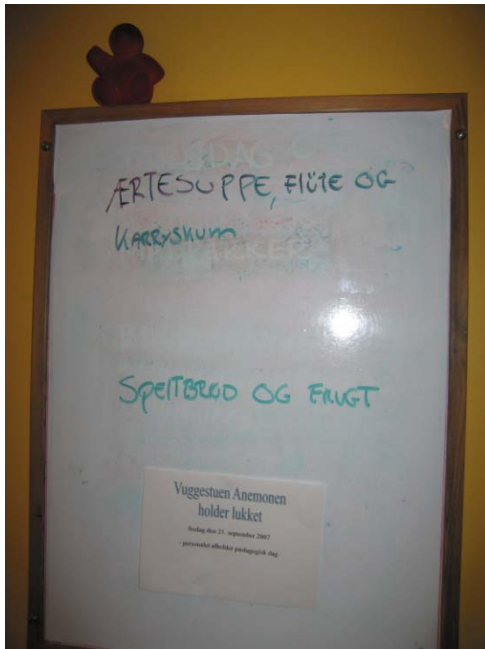 ÆRTESUPPE, FLÛTE OG
KARRYSKUM
SPELTBRØD OG FRUGT
Vuggestuen Anemonen
holder lukket
fredag den 21. september 2007
- personalet afholder pædagogisk dag